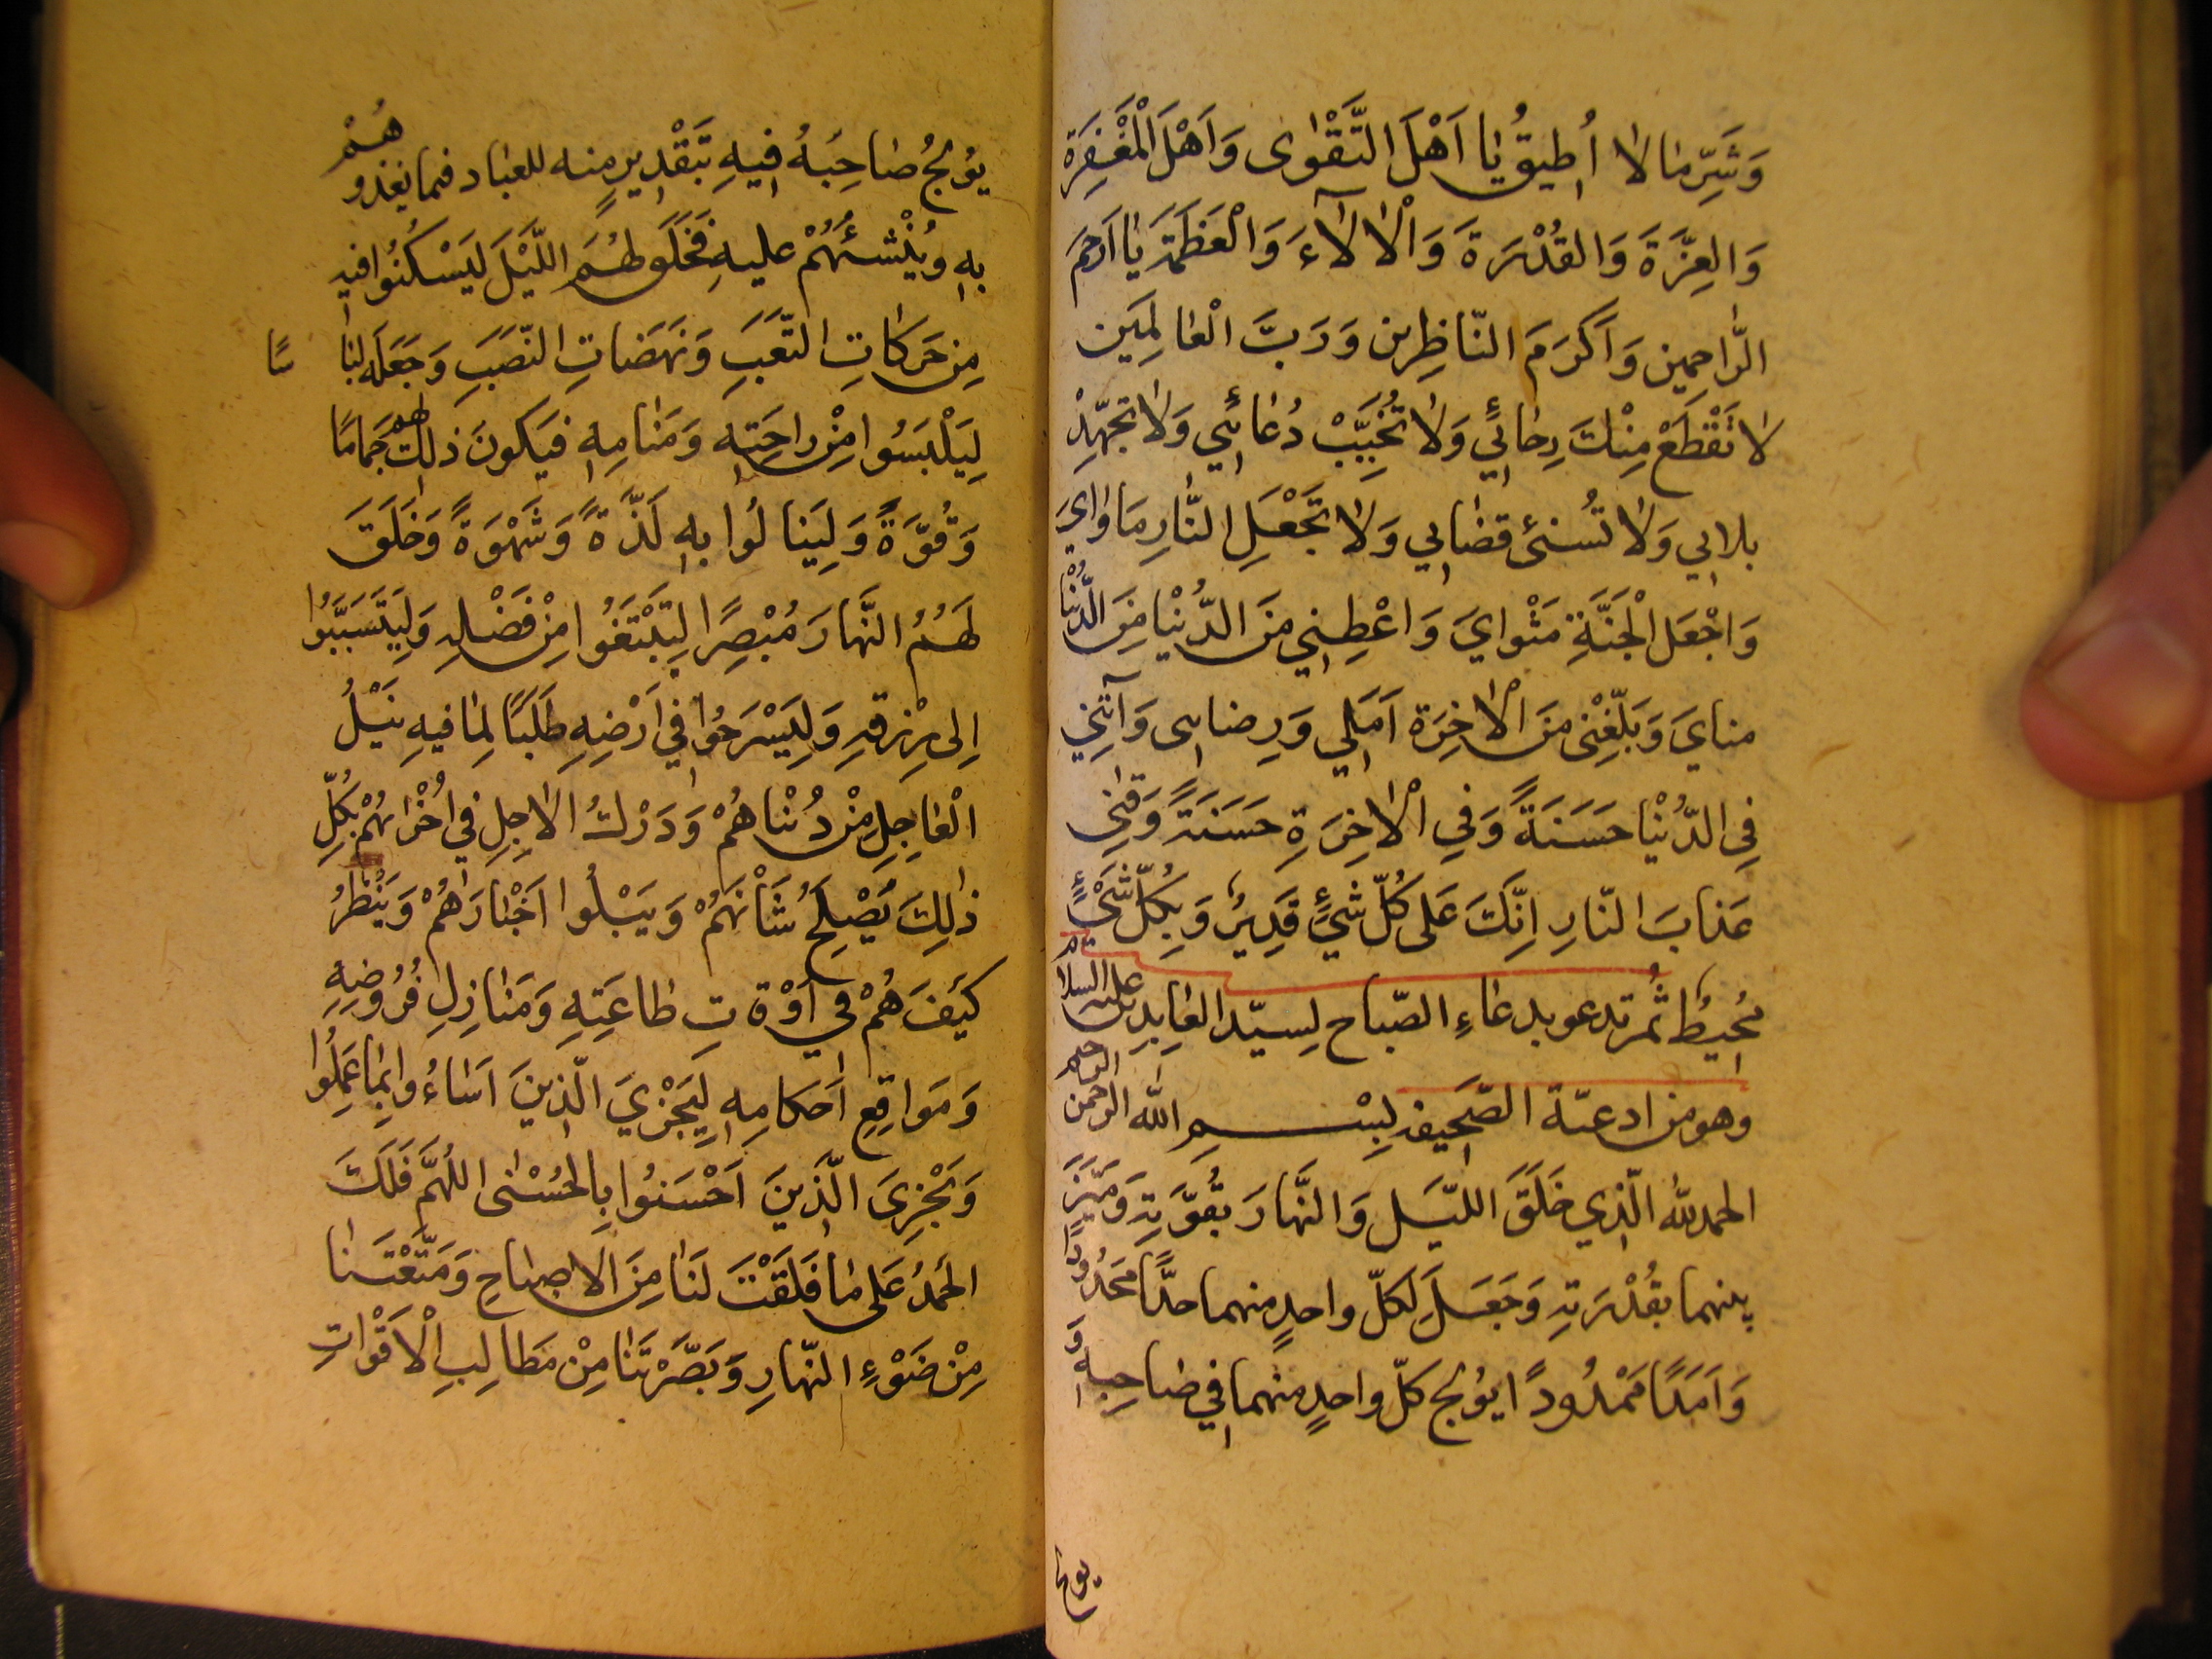 وَشَرِّ مَا لَا اُطِيقُ يَا اَهْلَ التَّقْوٰى وَاَهْلَ الْمَغْفِرَة
وَالعِزَّةَ وَالقُدْرَةَ وَالْآلَاءَ وَالْعَظَمَةَ يَا اَرْحَمَ
الرَّاحِمِين وَاَكْرَمَ النّاظِرِين وَرَبَّ الْعَالَمِينَ
لَا تَقْطَعْ مِنْكَ رجائي وَلَا تُخَيِّبْ دُعَائي وَلَا تجهد
بلائي وَلَا تُسئ قضايي وَلَا تَجْعَلِ النَّارِ مَاوَايَ
وَاجْعَل الْجَنَّةِ مَثْوايَ وَاعْطِنِي مِنَ الدُّنْيَا مِنَ الدُّنْيَا
منايَ وَبَلِّغْنِى مِنَ الْاخِرَة اَمَلِي وَرِضايى وَآتِنِي
فِي الدُّنْيَا حَسَنَةً وَفِي الْاخِرَةِ حَسَنَةً وَقِنِى
عَذَابَ النّارِ اِنَّكَ عَلى كُلّ شَيْءٍ قَدِيرٌ وَبِكُلّ شَيْءٍ
مُحِيطٌ ثُمّ تدعو بدعَاءِ الصّباح لِسيّد العَابِدِين عليه السلام
وهو من ادعيّة الصَّحِيفه بِسْمِ الله الرحمن الرحيم
الحمد لله الّذِي خَلَقَ اللّيَل وَالنَّهَارَ بقُوَّتِهِ وَمَيَّزَ
بينهما بقُدْرَتِهِ وَجَعَلَ لِكلّ واحدٍ منهما حدًّا مَحْدُودًا
وَاَمَدًا مَمْدُودًا يُولج كلّ واحدٍ منهما فِي صَاحِبِهِ وَ
يولج
يُولِجُ صَاحِبَهُ فِيهِ بِتَقْدِيرٍ مِنه للعبَاد فيما يغذوهُمْ
بِهِ وَيُنْشئُهُمْ عليهِ فَخَلَقَ لهُمَ اللَّيْلَ لِيَسْكُنُوا فيهِ
مِن حَرَكَاتِ التَّعَبِ وَنَهَضَاتِ النَّصَبِ وَجَعَلَه لِبَاسًا
لِيَلْبَسُوا مِنْ رَاحَتِهِ وَمَنَامِهِ فيَكونَ ذلِكَ لَهُمْ جَمَامًا
وَقُوَّةً وَلِيَنَالُوا بهِ لَذَّةً وَشَهْوَةً وَخَلَقَ
لَهُمُ النَّهَارَ مُبْصِرًا لِيَبْتَغُوا مِنْ فَضْلِهِ وَلِيَتَسَبَّبُوا
اِلى رِزْقهِ وَلِيَسْرَحُوا فِي اَرْضِهِ طَلَبًا لِمَا فيهِ نَيْلُ
الْعَاجِلِ مِنْ دُنْيَاهُمْ وَدَرْكُ الاجِلِ فِي اُخْرَاهُمْ بِكُلِّ
ذٰلِكَ يُصْلِحُ شَأْنَهُمْ وَيَبْلُوا اَخْبَارَهُمْ وَيَنْظُرُ
كَيْفَ هُمْ فِي اَوْقَاتِ طَاعَتِهِ وَمَنَازِلِ فُرُوضِهِ
وَمَوَاقِعِ اَحكامِهِ لِيَجْزِيَ الَّذِينَ اَسَاءُوا بِمَا عَمِلُوا
وَيَجْزِيَ الَّذِينَ اَحْسَنُوا بِالْحُسْنٰى اللهُمَّ فَلَكَ
الحَمْدُ عَلَى مَا فَلَقْتَ لَنَا مِنَ الاِصْبَاحِ وَمَتَّعْتَنَا
مِنْ ضَوْءِ النّهَارِ وَبَصَّرْتَنَا مِنْ مَطَالِبِ الْاَقْوَاتِ